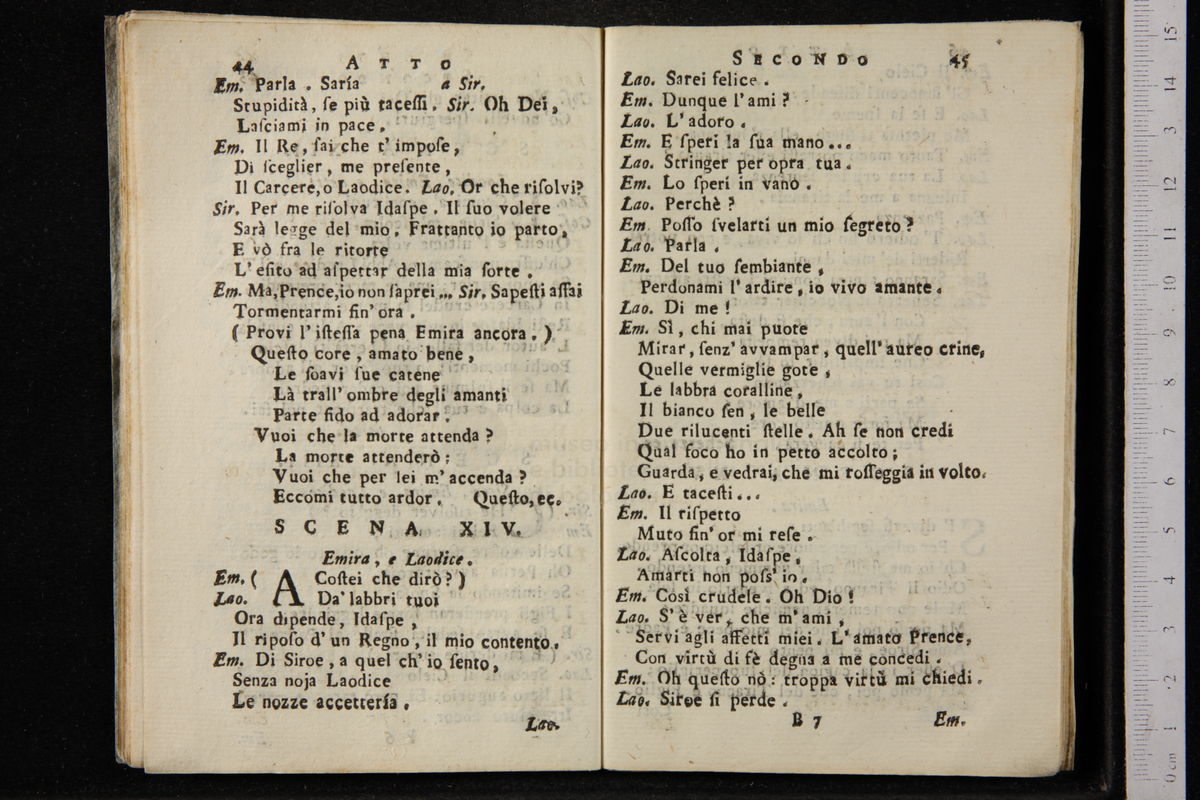 44 ATTO
Em. Parla. Saría a Sir.
Stupidità, ſe più taceſſi. Sir. Oh Dei,
Laſciami in pace.
Em. Il Re, ſai che t' impoſe,
Di ſceglier, me preſente,
Il Carcere, o Laodice. Lao. Or che riſolvi?
Sir. Per me riſolva Idaſpe. Il ſuo volere
Sarà legge del mio. Frattanto io parto,
E vò fra le ritorte
L' eſito ad aſpettar della mia ſorte.
Em. Ma, Prence, io non ſaprei... Sir. Sapeſti aſſai
Tormentarmi fin' ora.
(Provi l' iſteſſa pena Emira ancora.)
Queſto core, amato bene,
Le ſoavi ſue catene
Là trall' ombre degli amanti
Parte fido ad adorar.
Vuoi che la morte attenda?
La morte attenderò:
Vuoi che per lei m' accenda?
Eccomi tutto ardor. Queſto, ec.
SCENA XIV.
Emira, e Laodice.
Em. ( A Coſtei che dirò?)
Lao. Da' labbri tuoi
Ora dipende, Idaſpe,
Il ripoſo d' un Regno, il mio contento.
Em. Di Siroe, a quel ch' io ſento,
Senza noja Laodice
Le nozze accettería.
Lao.
SECONDO 45
Lao. Sarei felice.
Em. Dunque l' ami?
Lao. L' adoro.
Em. E ſperi la ſua mano...
Lao. Stringer per opra tua.
Em. Lo ſperi in vano.
Lao. Perchè?
Em Poſſo ſvelarti un mio ſegreto?
Lao. Parla.
Em. Del tuo ſembiante,
Perdonami l' ardire, io vivo amante.
Lao. Di me!
Em. Sì, chi mai puote
Mirar, ſenz' avvampar, quell' aureo crine,
Quelle vermiglie gote,
Le labbra coralline,
Il bianco ſen, le belle
Due rilucenti ſtelle. Ah ſe non credi
Qual foco ho in petto accolto;
Guarda, e vedrai, che mi roſſeggia in volto.
Lao. E taceſti...
Em. Il riſpetto
Muto fin' or mi reſe.
Lao. Aſcolta, Idaſpe,
Amarti non poſs' io.
Em. Così crudele. Oh Dio!
Lao. S' è ver, che m' ami,
Servi agli affetti miei. L' amato Prence,
Con virtù di fè degna a me concedi.
Em. Oh queſto nò: troppa virtù mi chiedi.
Lao. Siroe ſi perde.
B 7 Em.